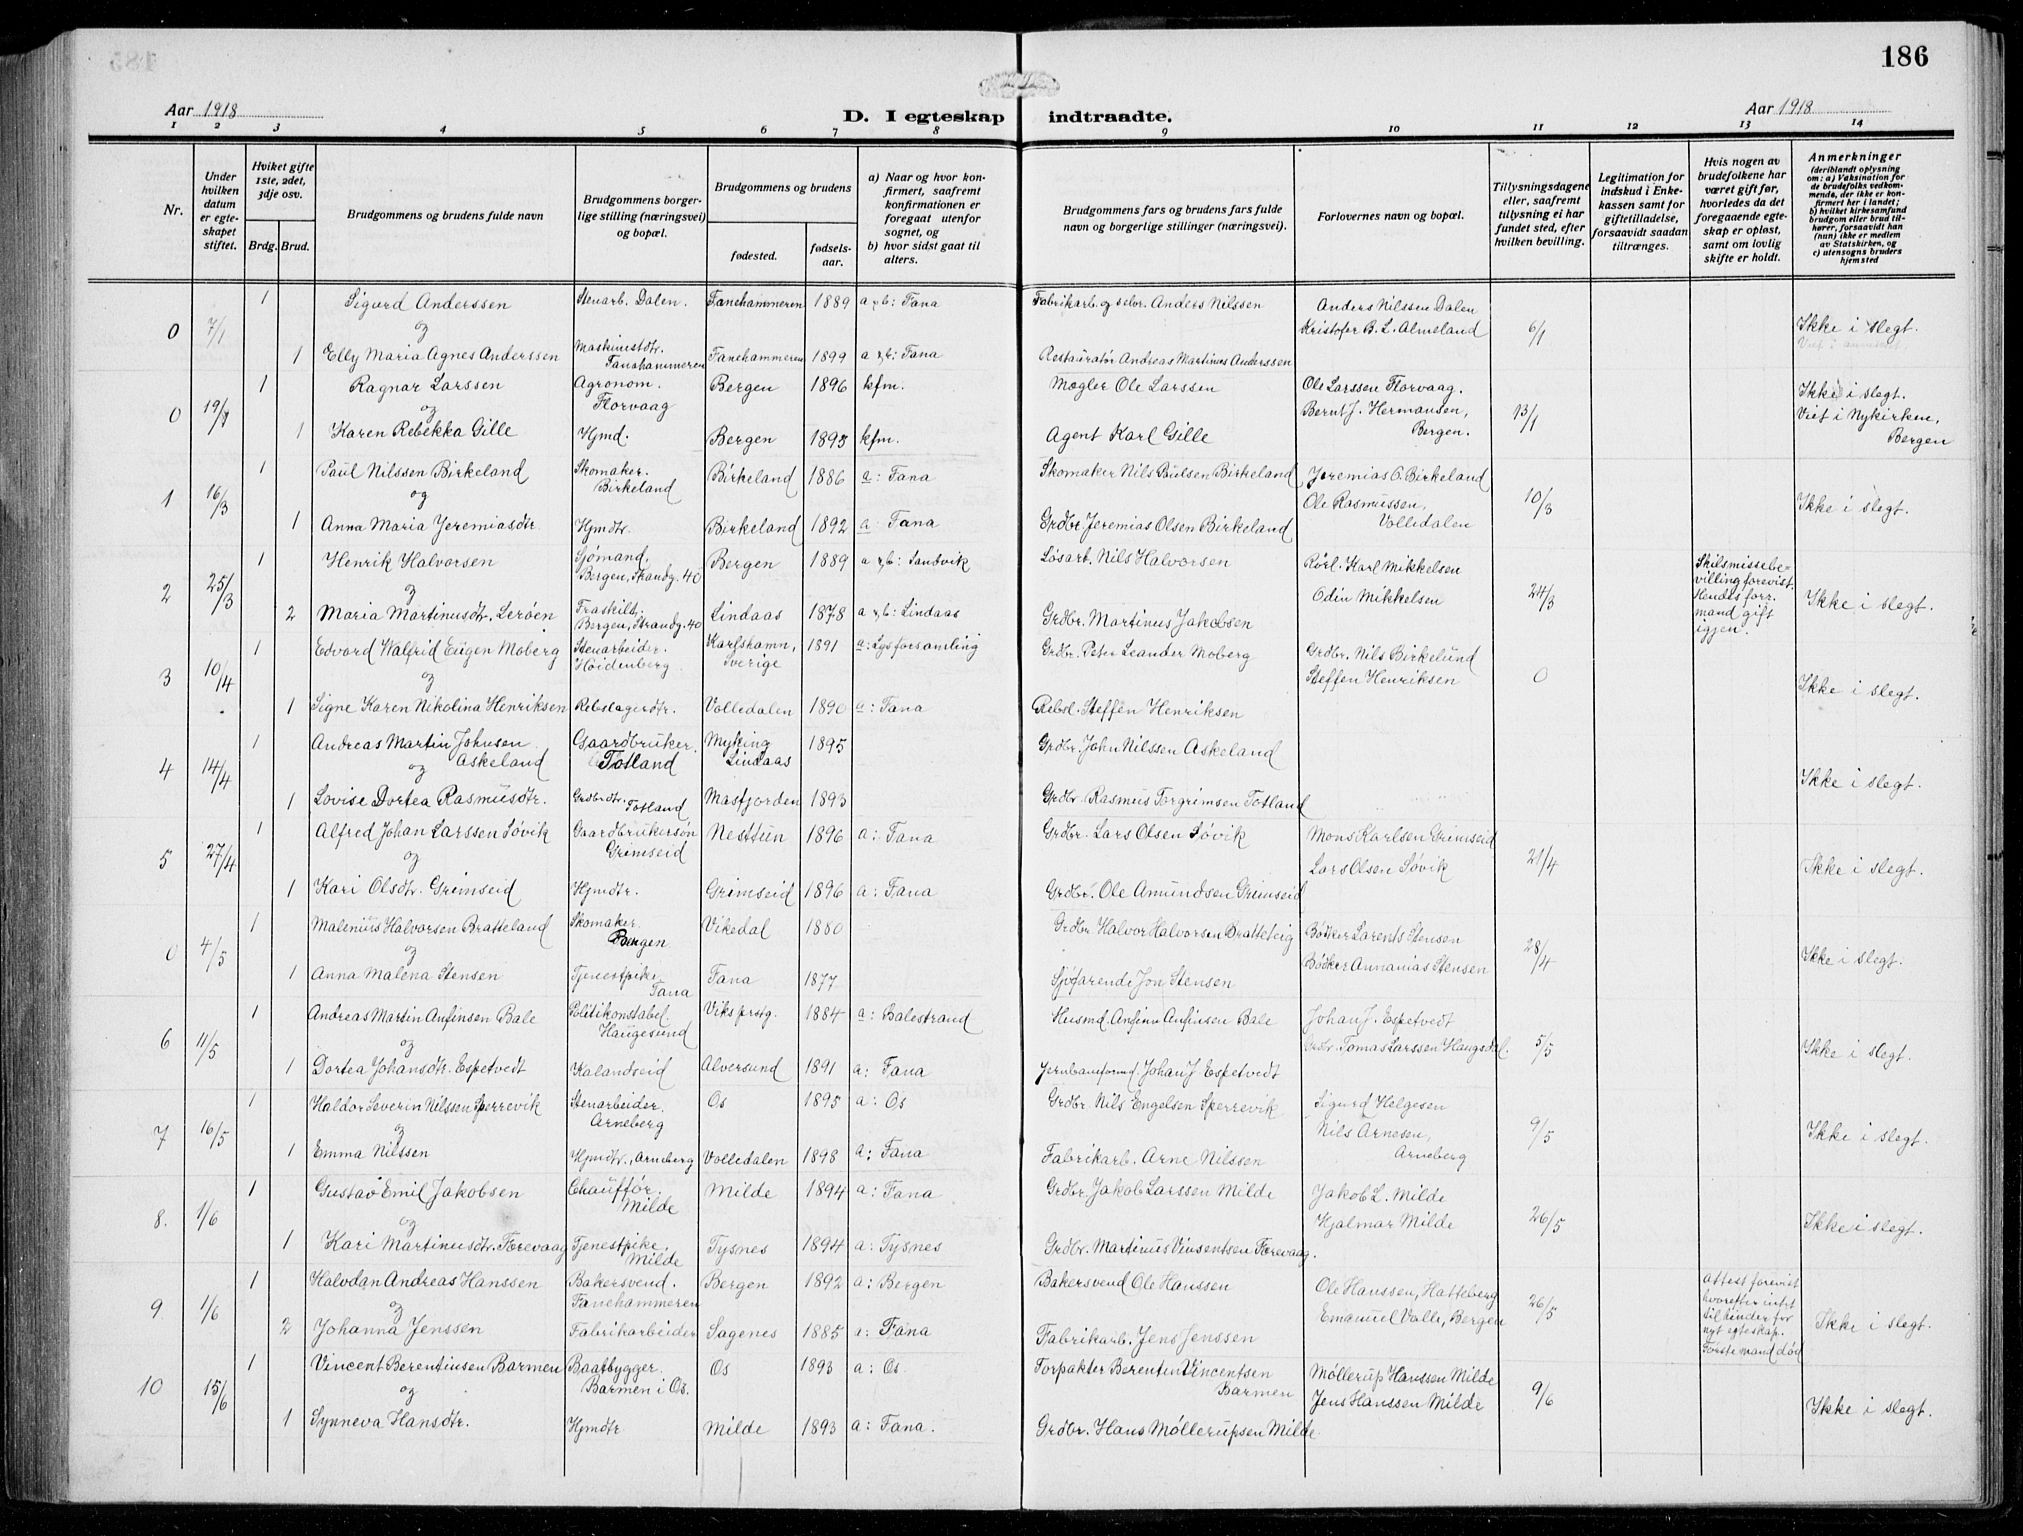 186
Aar 1918
D. I egteskap indtraadte.
Aar 1918
1 2 3 4 5 6 7 8 9 10 11 12 13 14
Nr.
Under hvilken datum er egteskapet stiftet.
Hviket gifte 1ste, 2det, 3dje osv.
Brdg. Brud.
Brudgommens og brudens fulde navn
Brudgommens borgerlige stilling (næringsvei) og bopæl.
Brudgommens og brudens
fødested.
fødselsaar.
a) Naar og hvor konfirmert, saafremt konfirmationen er foregaat utenfor sognet, og
b) hvor sidst gaat til alters.
Brudgommens fars og brudens fars fulde navn og borgerlige stillinger (næringsvei).
Forlovernes navn og bopæl.
Tillysningsdagene eller, saafremt tillysning ei har fundet sted, efter hvilken bevilling.
Legitimation for indskud i Enkekassen samt for giftetilladelse, forsaavidt saadan tiltrænges.
Hvis nogen av brudefolkene har været gift før, hvorledes da det foregaaende egteskap er opløst, samt om lovlig skifte er holdt.
Anmerkninger (deriblandt oplysning om: a) Vaksination for de brudefolks vedkommende, der ikke er konfirmert her i landet; b) hvilket kirkesamfund brudgom eller brud tilhører, forsaavidt han (hun) ikke er medlem av Statskirken, og c) utensogns bruders hjemsted
0 7/1 1 Sigurd Anderssen Stenarb. Dalen. Fanehammeren 1889 a & b: Fana Fabrikarb. og selv. Anders Nilssen Anders Nilssen Dalen
og Kristofer B. L. Almeland 6/1 Ikke i slegt.
1 Elly Maria Agnes Anderssen Maskinistdtr. Fanehammeren Fanehammeren 1899 a & b: Fana Restauratør Andreas Martinus Anderssen
0 19/1 1 Ragnar Larssen Agronom. Florvaag Bergen 1896 kfm. Mægler Ole Larssen Ole Larssen Florvaag. Ikke i slegt.
og Bernt J. Hermansen, Bergen. 13/1 Viet i Nykirken, Bergen
1 Karen Rebekka Gille Hjmd. Bergen 1895 kfm. Agent Karl Gille
1 16/3 1 Paul Nilssen Birkeland Skomaker. Birkeland Birkeland 1886 a: Fana Skomaker Nils Pulsen Birkeland Jeremias O. Birkeland
og Ole Rasmussen, Volledalen 10/3 Ikke i slegt.
1 Anna Maria Jeremiasdtr. Hjmdtr. Birkeland 1892 a: Fana Grdbr. Jeremias Olsen Birkeland
2 25/3 1 Henrik Halvorsen Sjømand, Bergen, Strandg. 40 Bergen 1889 a & b: Sandvik Løsarb. Nils Halvorsen Rørl. Karl Mikkelsen Skilsmissebevilling forevist. Hendes forr. mand gift igjen.
og Odin Mikkelsen 24/3 Ikke i slegt.
2 Maria Martinusdtr. Lerøen Fraskilt. Bergen, Strandg. 40 Lindaas 1878 a & b: Lindaas Grdbr. Martinus Jakobsen
3 10/4 1 Edvard Walfrid Eugen Moberg Stenarbeider. Høidenberg Karlshamn, Sverige 1891 a: Lysforsamling Grdbr. Peter Leander Moberg Grdbr. Nils Birkelund
og Steffen Henriksen 0 Ikke i slegt.
1 Signe Karen Nikolina Henriksen Rebslagerdtr. Volledalen 1890 a: Fana Rebsl. Steffen Henriksen
4 14/4 1 Andreas Martin Johnsen Askeland Gaardbruker. Totland Myking Lindaas 1895 Grdbr. John Nilssen Askeland
og Ikke i slegt.
1 Lovise Dortea Rasmusdtr. Grdbrdtr. Totland Masfjorden 1893 Grdbr. Rasmus Torgrimsen Totland
5 27/4 1 Alfred Johan Larssen Søvik Gaardbrukersøn Grimseid Nesttun 1896 a: Fana Grdbr. Lars Olsen Søvik Mons Karlsen Grimseid
og Lars Olsen Søvik 21/4 Ikke i slegt.
1 Kari Olsdtr. Grimseid Hjmdtr. Grimseid 1896 a: Fana Grdbr. Ole Amundsen Grimseid
0 4/5 1 Malenius Halvorsen Bratteland Skomaker. Bergen Vikedal 1880 Grdbr. Halvor Halvorsen Bratteteig Bødker Larents Stensen
og Bødker Annanias Stensen 28/4 Ikke i slegt.
1 Anna Malena Stensen Tjenestpike. Fana Fana 1877 Sjøfarende Jon Stensen
6 11/5 1 Andreas Martin Anfinsen Bale Politikonstabel. Haugesund Viks prstg. 1884 a: Balestrand Husmd. Anfinn Anfinsen Bale Johan J. Espetvedt
og Tomas Larssen Haugsdal. 5/5 Ikke i slegt.
1 Dortea Johansdtr. Espetvedt Kalandseid Alversund 1891 a: Fana Jernbaneformd. Johan J Espetvedt
7 16/5 1 Haldor Severin Nilssen Sperrevik Stenarbeider. Arneberg Os 1895 a: Os Grdbr. Nils Engelsen Sperrevik Sigurd Helgesen
og Nils Arnesen, Arneberg 9/5 Ikke i slegt.
1 Emma Nilssen Hjmdtr., Arneberg Volledalen 1898 a: Fana Fabrikarb. Arne Nilssen
8. 1/6 1 Gustav Emil Jakobsen Chauffør. Milde Milde 1894 a: Fana Grdbr. Jakob Larssen Milde Jakob L. Milde
og Hjalmar Milde 26/5 Ikke i slegt.
1 Kari Martinusdtr. Færevaag Tjenestpike. Milde Tysnes 1894 a: Tysnes Grdbr. Martinus Vinsentsen Færevaag.
9 1/6 1 Halvdan Andreas Hanssen Bakersvend. Fanehammeren Bergen 1892 a: Bergen Bakersvend Ole Hanssen Ole Hanssen, Hatteberg Attest forevist hvorefter intet til hinder for nyt egteskap. Første mand død
og Emanuel Valle, Bergen 26/5 Ikke i slegt.
2 Johanna Jenssen Fabrikarbeider Sagenes 1885 a: Fana Fabrikarb. Jens Jenssen
10 15/6 1 Vincent Berentinsen Barmen Baatbygger. Barmen i Os. Os 1893 a: Os. Forpakter Berentin Vincentsen Barmen Møllerup Hanssen Milde
og Jens Hanssen Milde 9/6 Ikke i slegt.
1 Synneva Hansdtr. Hjmdtr Milde 1893 a: Fana. Grdbr. Hans Møllerupsen Milde